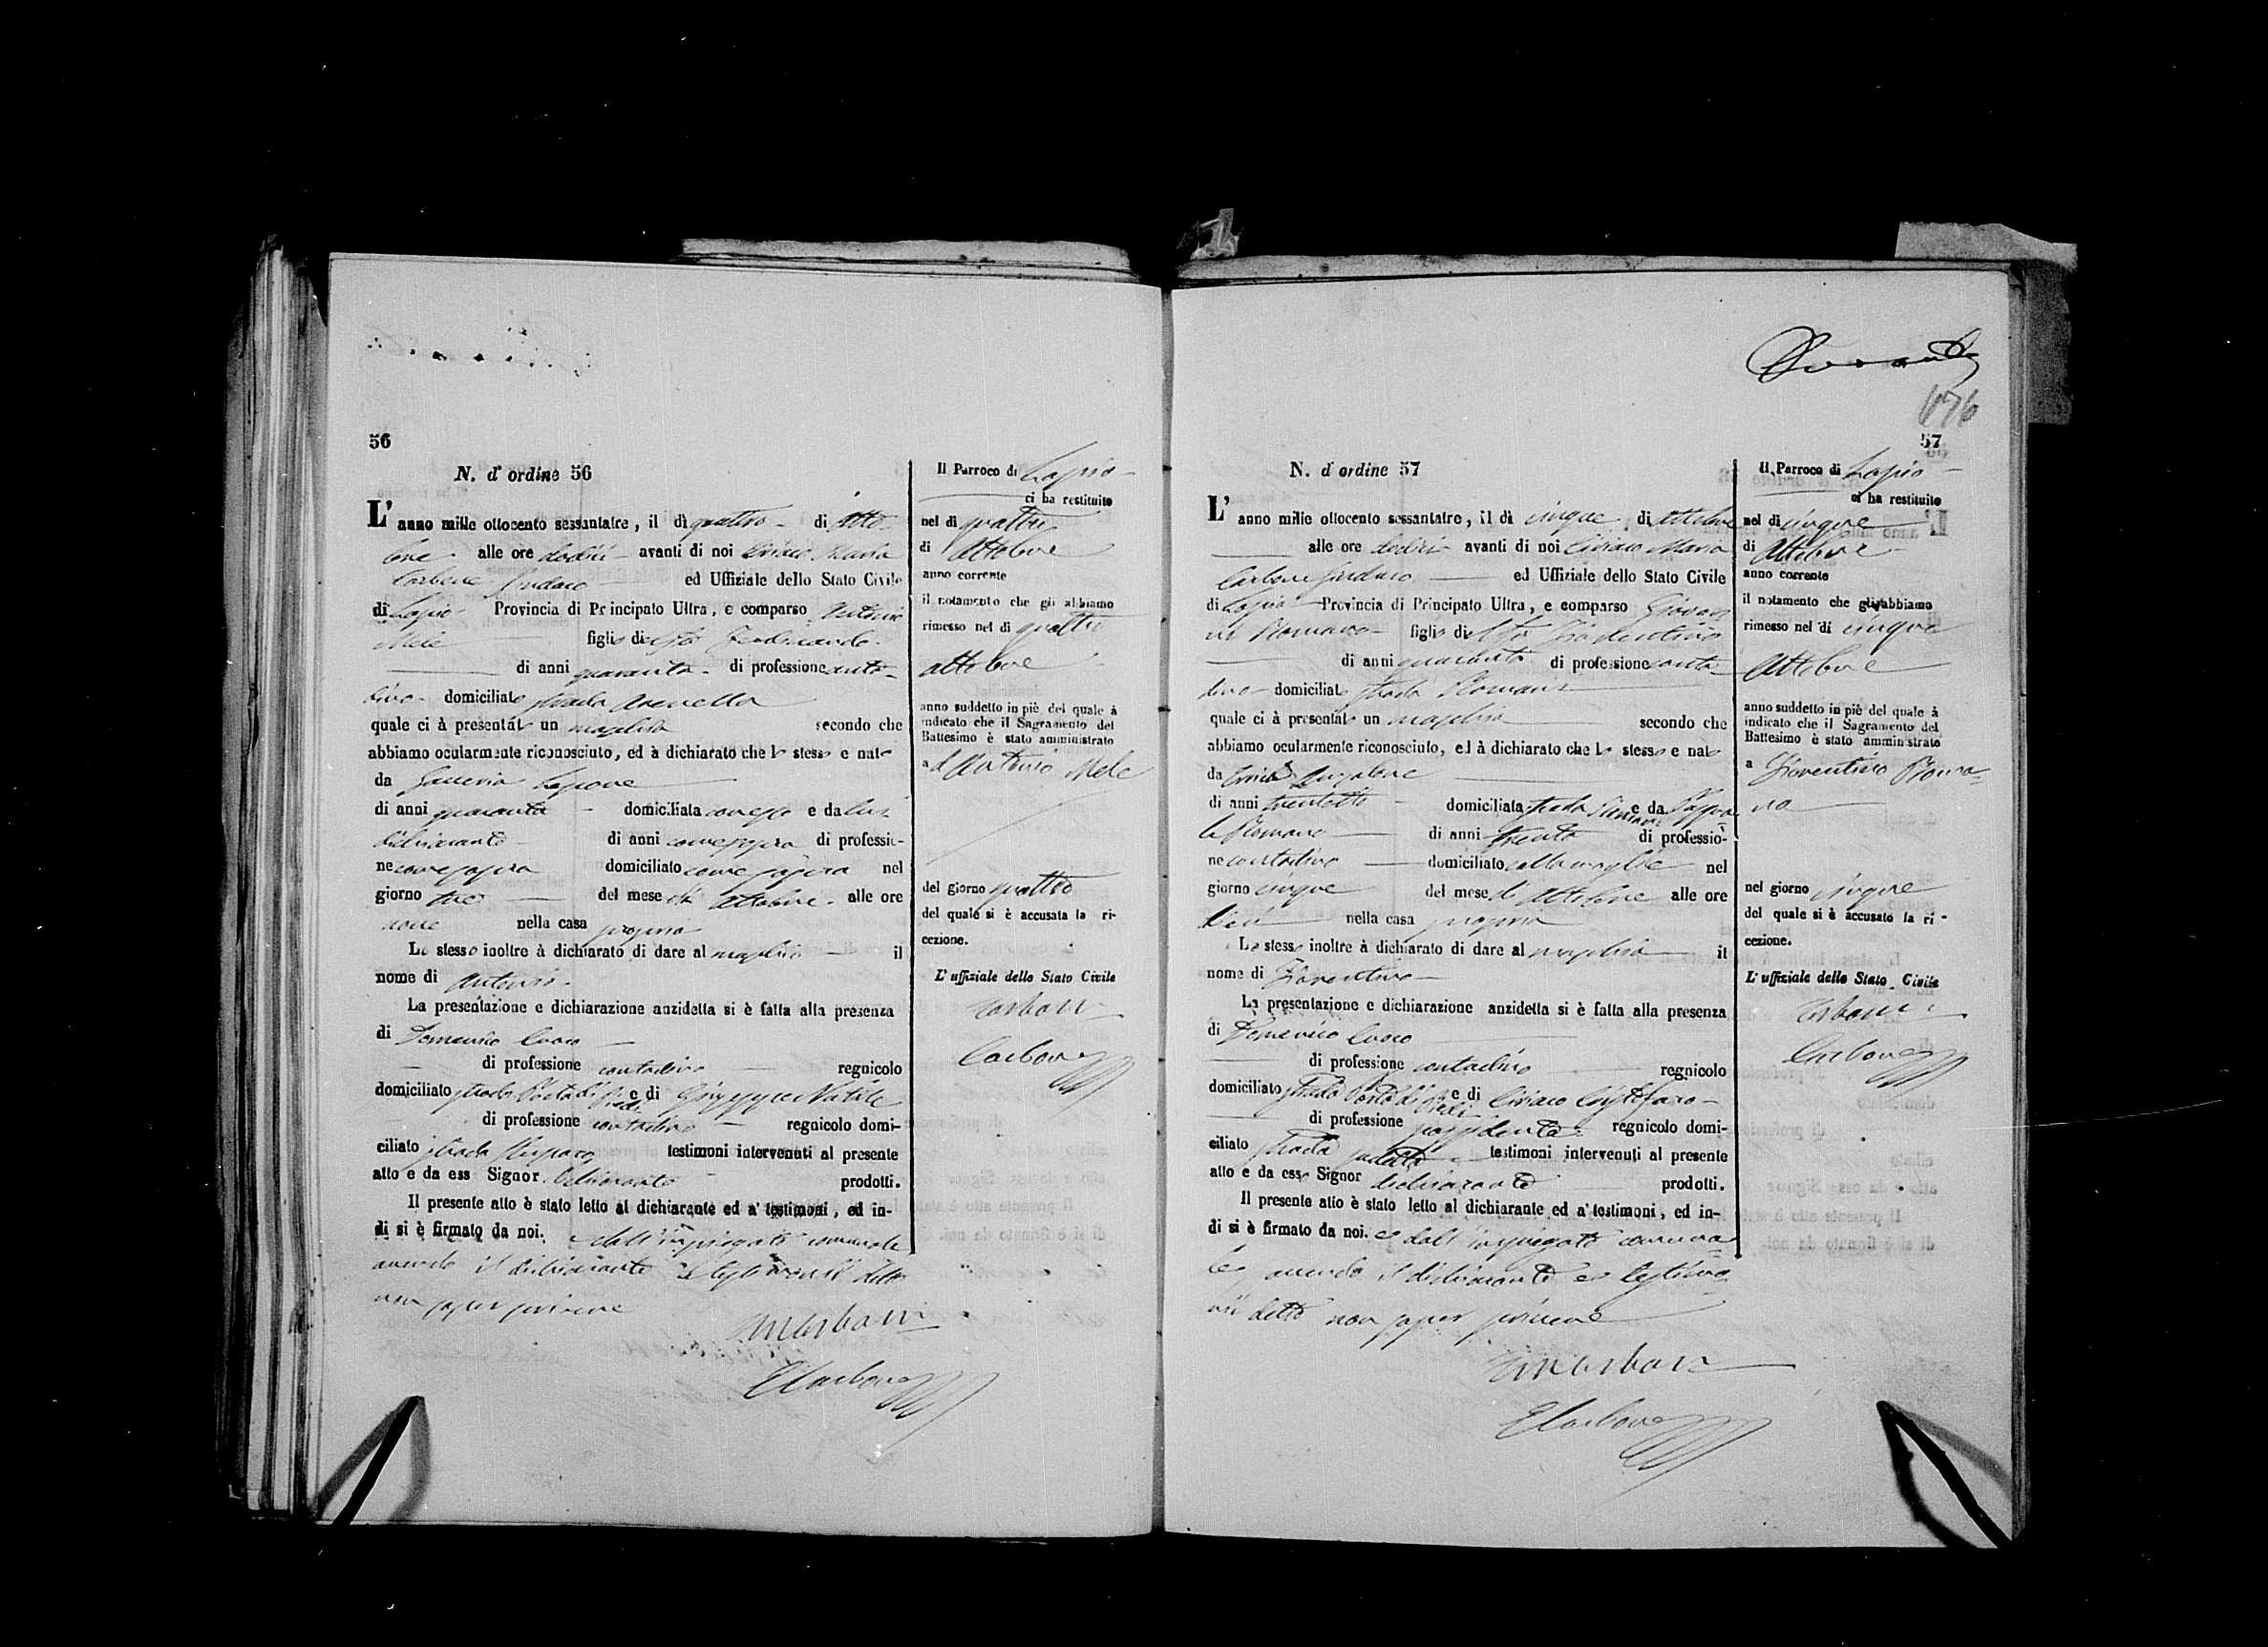 56
N. d'ordine 56
L'anno mille ottocento sessantatre, il dì quattro di Otto
bre alle ore dodici avanti di noi Ciriaco Maria
Carbone Sindaco ed Uffiziale dello Stato Civile
di Lapio Provincia di Principato Ultra, e comparso Antonio
Mele figlio di Ferdinando
di anni quaranta di professione conta
dino domiciliato strada
quale ci à presentato un maschio secondo che
abbiamo ocularmente riconosciuto, ed à dichiarato che lo stesso e nato
da
di anni quaranta domiciliata e da lui
dichiarante di anni come sopra di professio-
ne come sopra domiciliato come sopra nel
giorno tre del mese di Ottobre alle ore
nove nella casa propria
Lo stesso inoltre à dichiarato di dare al maschio il
nome di Antonio
La presentazione e dichiarazione anzidetta si è fatta alla presenza
di Domenico
di professione contadino regnicolo
domiciliato strada Porta di Piedi e di Giuseppe Natale
di professione contadino regnicolo domi-
ciliato strada testimoni intervenuti al presente
atto e da ess Signor dichiarante prodotti.
Il presente atto è stato letto al dichiarante ed a' testimoni, ed in-
di si è firmato da noi. e dall'impiegato comunale
avendo il dichiarante e testimonii detto
non saper scrivere
Carbone
Il Parroco di Lapio
ci ha restituito
nel dì quattro
di Ottobre
anno corrente
il notamento che gli abbiamo
rimesso nel dì quattro
Ottobre
anno suddetto in piè del quale à
indicato che il Sagramento del
Battesimo è stato amministrato
ad Antonio Mele
del giorno quattro
del quale si è accusata la ri-
cezione.
L'uffiziale dello Stato Civile
Carbone
676
57
N. d'ordine 57
L'anno mille ottocento sessantatre, il dì cinque di Ottobre
alle ore dodici avanti di noi Ciriaco Maria
Carbone Sindaco ed Uffiziale dello Stato Civile
di Lapio Provincia di Principato Ultra, e comparso Giovan
ni Romano figlio di Fiorentino
di anni quaranta di professione conta
dino domiciliato strada Romani
quale ci à presentato un maschio secondo che
abbiamo ocularmente riconosciuto, ed à dichiarato che lo stesso e nato
da
di anni trentotto domiciliata strada Romani e da
le Romano di anni trenta di professio-
ne contadino domiciliato colla moglie nel
giorno cinque del mese di Ottobre alle ore
dieci nella casa propria
Lo stesso inoltre à dichiarato di dare al maschio il
nome di Fiorentino
La presentazione e dichiarazione anzidetta si è fatta alla presenza
di Domenico
di professione contadino regnicolo
domiciliato strada Porta di Piedi e di Ciriaco
di professione possidente regnicolo domi-
ciliato strada testimoni intervenuti al presente
atto e da esso Signor dichiarante prodotti.
Il presente atto è stato letto al dichiarante ed a' testimoni, ed in-
di si è firmato da noi. e dall'impiegato comuna
le avendo il dichiarante e testimo
nii detto non saper scrivere
Carbone
Il Parroco di Lapio
ci ha restituito
nel dì cinque
di Ottobre
anno corrente
il notamento che gli abbiamo
rimesso nel dì cinque
Ottobre
anno suddetto in piè del quale à
indicato che il Sagramento del
Battesimo è stato amministrato
a Fiorentino Roma
no
nel giorno cinque
del quale si è accusato la ri-
cezione.
L'uffiziale dello Stato Civile
Carbone